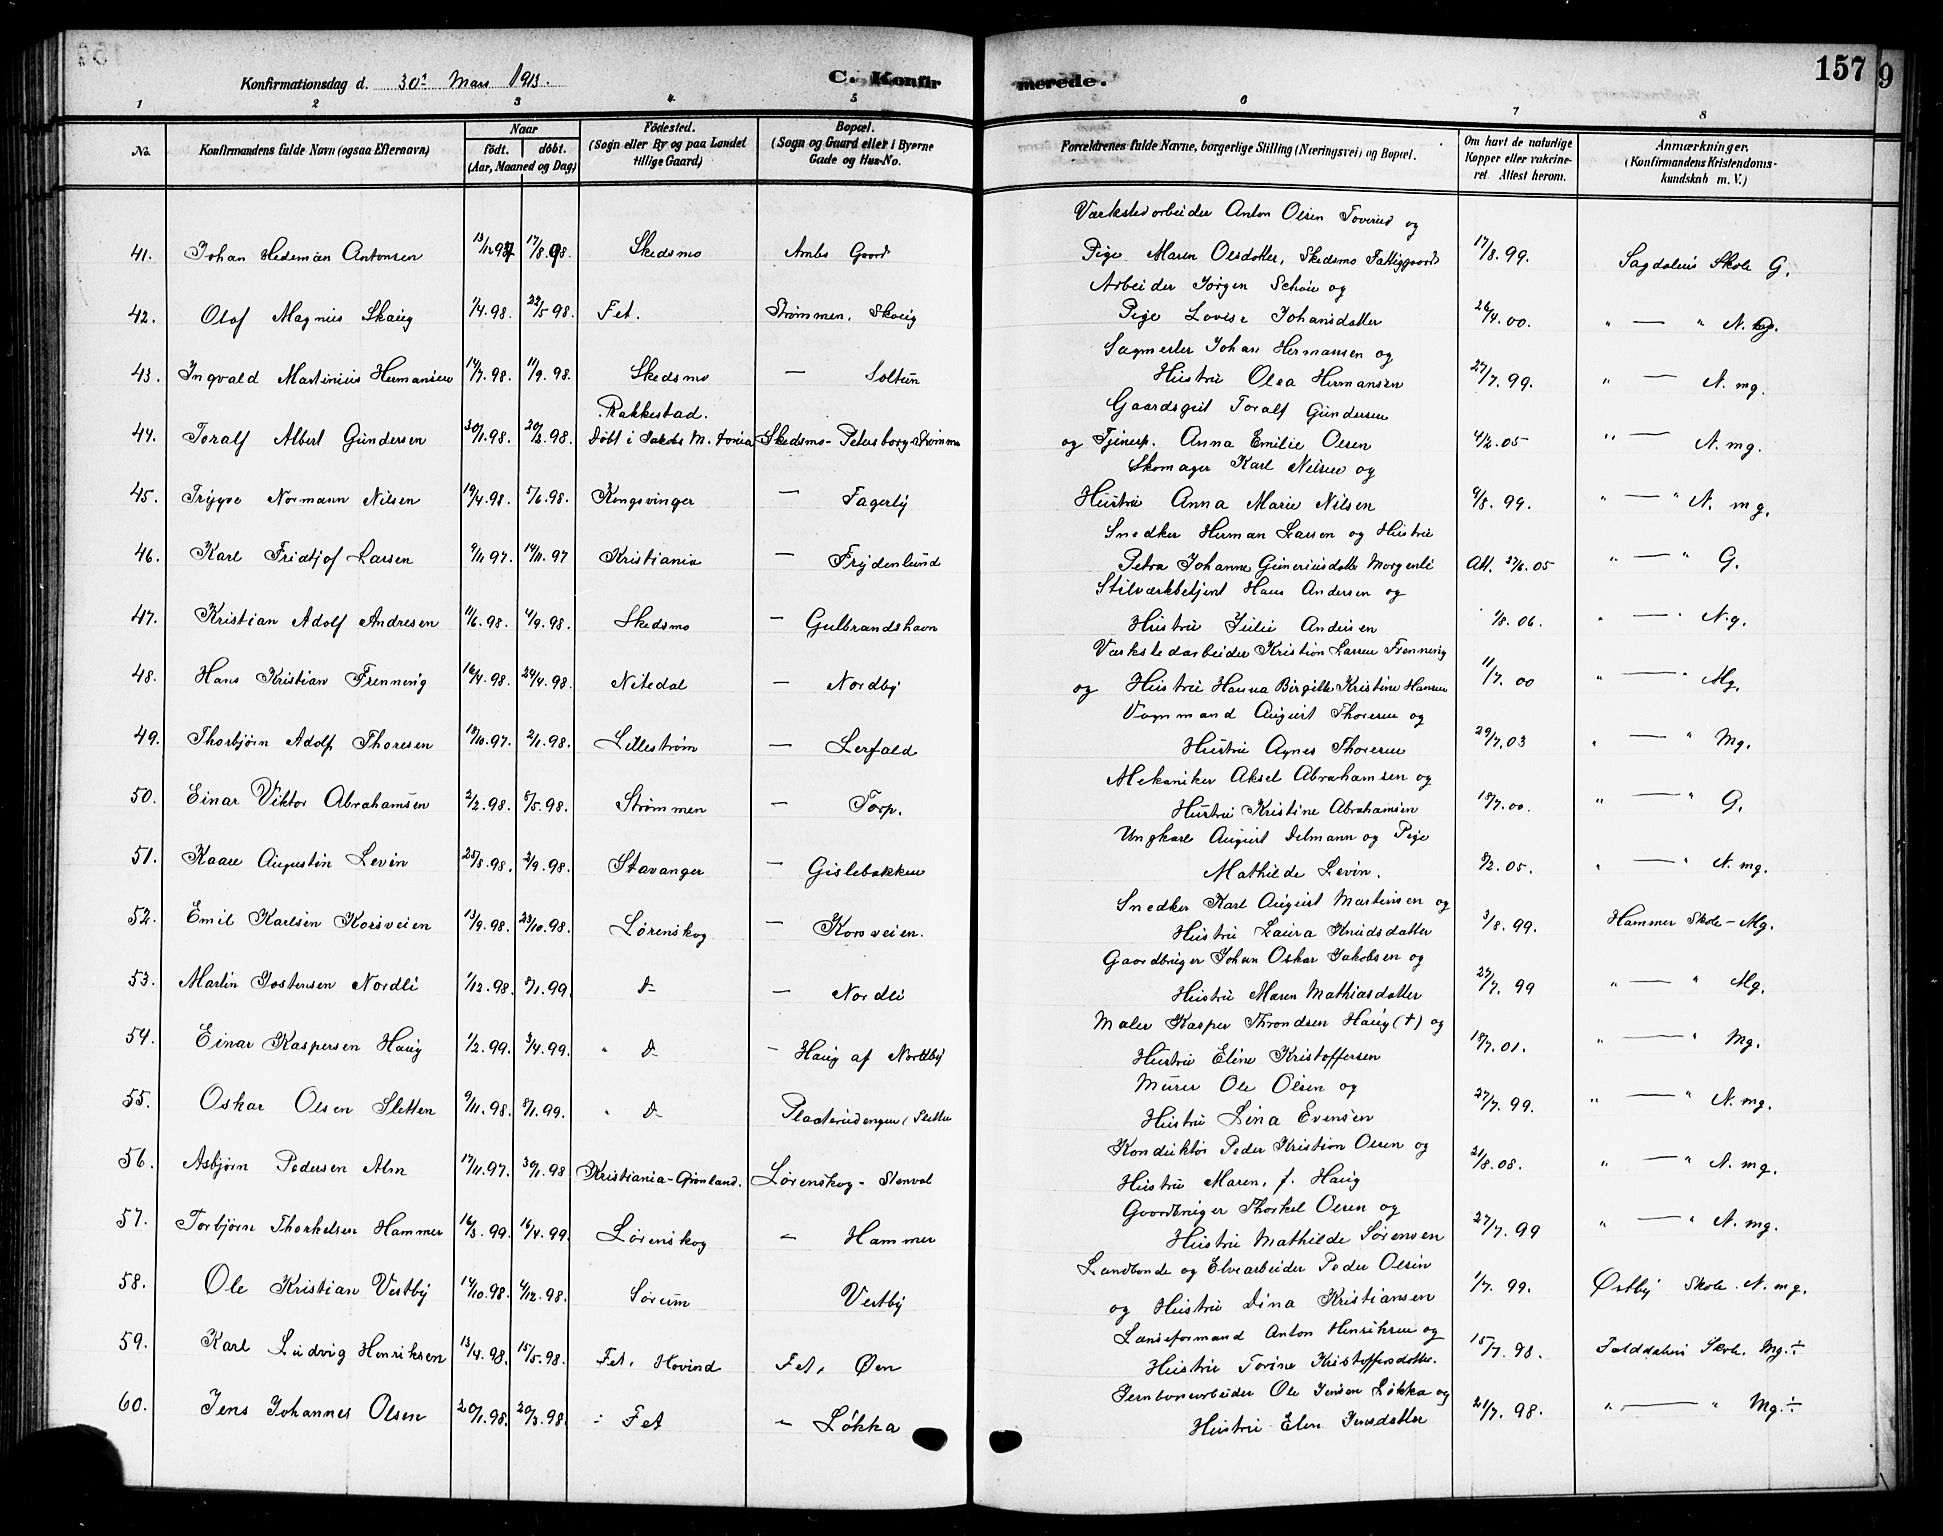 157
9
Konfirmationsdag d. 30te Mars 1913.
C. Konfirmerede.
1 2 3 4 5 6 7 8
No. Konfirmandens fulde Navn (ogsaa Efternavn) Naar født. døbt. (Aar, Maaned og Dag) Fødested. (Sogn eller By og paa Landet tillige Gaard) Bopæl. (Sogn og Gaard eller i Byerne Gade og Hus-No. Forældrenes fulde Navne, borgerlige Stilling (Næringsvei) og Bopæl. Om havt de naturlige Kopper eller vakcineret. Attest herom. Anmærkninger. (Konfirmandens Kristendomskundskab m. V.)
Værkstedarbeider Anton Olsen Toverud og
41. Johan Hedeman Antonsen 13/12 97 17/8.98. Skedsmo Ambs Gaard Pige Maren Olsdatter, Skedsmo Fattiggaard 17/8.99. Sagdalens Skole G.
Arbeider Jørgen Schøie og
42. Olaf Magnus Skaug 1/4.98. 22/5.98. Fet. Strømmen, Skaug Pige Lovise Johansdatter 26/4.00. " — " N.g.
Sagmester Johan Hermansen og
43. Ingvald Martinius Hermansen 14/7.98. 11/9.98. Skedsmo — Soltun Hustru Olea Hermansen 27/7.99. " — N. mg.
Rakkestad. Gaardsgut Toralf Gundersen
44. Toralf Albert Gundersen 30/1.98. 20/2.98. Døbt i Jakobs M. Kristiania Skedsmo - Petersborg Strømmen og Tjenesp. Anna Emilie Olsen 4/2.05 " — N. mg.
Skomager Karl Nilsen og
45. Trygve Normann Nilsen 19/4.98. 5/6.98. Kongsvinger — Fagerly Hustru Anna Marie Nilsen 9/8.99. " — " N. mg.
Snedker Herman Larsen og Hustru
46. Karl Fridtjof Larsen 9/11.97. 14/11.97 Kristiania — Frydenlund Petra Johanne Guneriusdatter Morgenli Att. 27/6.05 " — " G.
Stilværkbetjent Hans Andersen og
47. Kristian Adolf Andresen 11/6.98. 4/9.98. Skedsmo — Gulbrandshavn Hustru Julie Andersen 1/8.06. " — " N.g.
Værkstedarbeider Kristian Larsen Frenning
48. Hans Kristian Frenning 16/4.98. 24/4.98. Nitedal — Nordby og Hustru Hanna Birgitte Kristine Hansen 11/7.00 " — " Mg.
Vognmand August Thoresen og
49. Thorbjørn Adolf Thoresen 18/10.97. 2/1.98. Lillestrøm — Lerfald Hustru Agnes Thoresen 29/7.03 " — " Mg.
Mekaniker Aksel Abrahamsen og
50. Einar Viktor Abrahamsen 2/2.98. 8/5.98. Strømmen — Torp. Hustru Kristine Abrahamsen 18/7.00. " — " G.
Ungkarl August Dilmann og Pige
51. Kaare Augustin Levin 25/8.98. 2/9.98. Stavanger — Gislebakken Mathilde Levin. 8/2.05. " — " N. mg.
Snedker Karl August Martinsen og
52. Emil Karlsen Korsveien 13/9.98. 23/10.98. Lørenskog — Korsveien. Hustru Laura Knudsdatter 3/8.99. Hammer Skole - Mg.
Gaardbruger Johan Oskar Jakobsen og
53. Martin Jostensen Nordli 1/12.98. 8/1.99. D- — Nordli Hustru Maren Mathiasdatter 27/7.99 " — " Mg.
Maler Kasper Throndsen Haug (+) og
54. Einar Kaspersen Haug 1/2.99. 3/4.99. " D- — Haug af Nordby Hustru Eline Kristoffersen 18/7.01. " — " Mg.
Murer Ole Olsen og
55. Oskar Olsen Sletten 9/11.98. 8/1.99. " D- Sletten Hustru Lina Evensen 27/7.99. " — " N. mg.
Konduktør Peder Kristian Olsen og
56. Asbjørn Pedersen Alm 17/11.97. 30/1.98 Kristiania - Grønland. Lørenskog - Stenvad Hustru Maren, f. Haug 21/8.08. " — " N. mg.
Gaardbruger Thorkel Olsen og
57. Torbjørn Thorkelsen Hammer 16/3.99. 16/4.99. Lørenskog " Hammer Hustru Mathilde Sørensen 27/7.99 " — " N. mg.
Landbonde og Elvearbeider Peder Olsen
58. Ole Kristian Vestby 14/10.98. 4/12.98. Sørum Vestby og Hustru Dina Kristiansen 1/7.99. Østby Skole. N. mg.
Lænseformand Anton Henriksen og
59. Karl Ludvig Henriksen 13/4.98. 15/5.98. Fet, Hovind Fet, Øen Hustru Torine Kristoffersdatter. 15/7.98. Falddalens Skole. Mg.÷
Jernbanearbeider Ole Jensen Løkka og
60. Jens Johannes Olsen 20/1.98. 20/3.98. " Fet " Løkka Hustru Elen Jensdatter 21/7.98. " — " Mg.÷